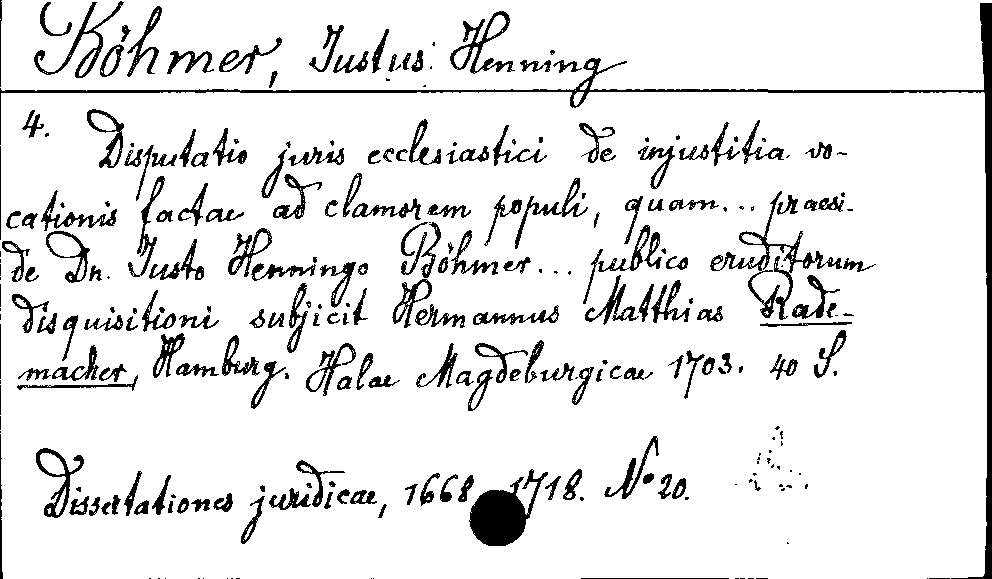 Böhmer, Justus Henning
4.
Disputatio juris ecclesiastici de injustitia vo-
cationis factae ad clamorem populi, quam... praesi-
de Dn. Justo Henningo Böhmer... publico eruditorum
disquisitioni subjicit Hermannus Matthias Rade-
macher, Hamburg. Halae Magdeburgicae 1703. 40 S.
Dissertationes juridicae, 1668 1718. No 20.